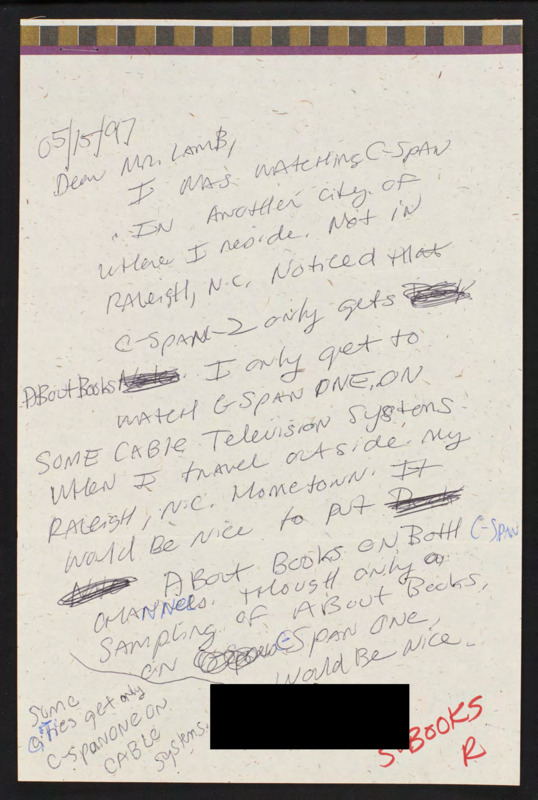 05/15/97
Dear Mr. LAMB,
I WAS WATCHING C-SPAN
IN ANOTHER city of
where I reside. Not in
RAleigH, N.C. Noticed that
C-SPAN-2 only gets
ABout Books. I only get to
WATCH C-SPAN ONE, ON
SOME CABLE Television Systems
WHEN I travel outside my
RALeigH, N.C. Hometown. It
Would Be Nice to put
ABout BOOKS ON BOTH C-SPAN
CHANNELS. tHougH only a
SAMPLing OF ABout BOOKS,
ON C-SPAN ONE,
Would Be Nice.
Some
Cities get only
C-SPAN ONE ON
CABLE
Systems.
BOOKS
R